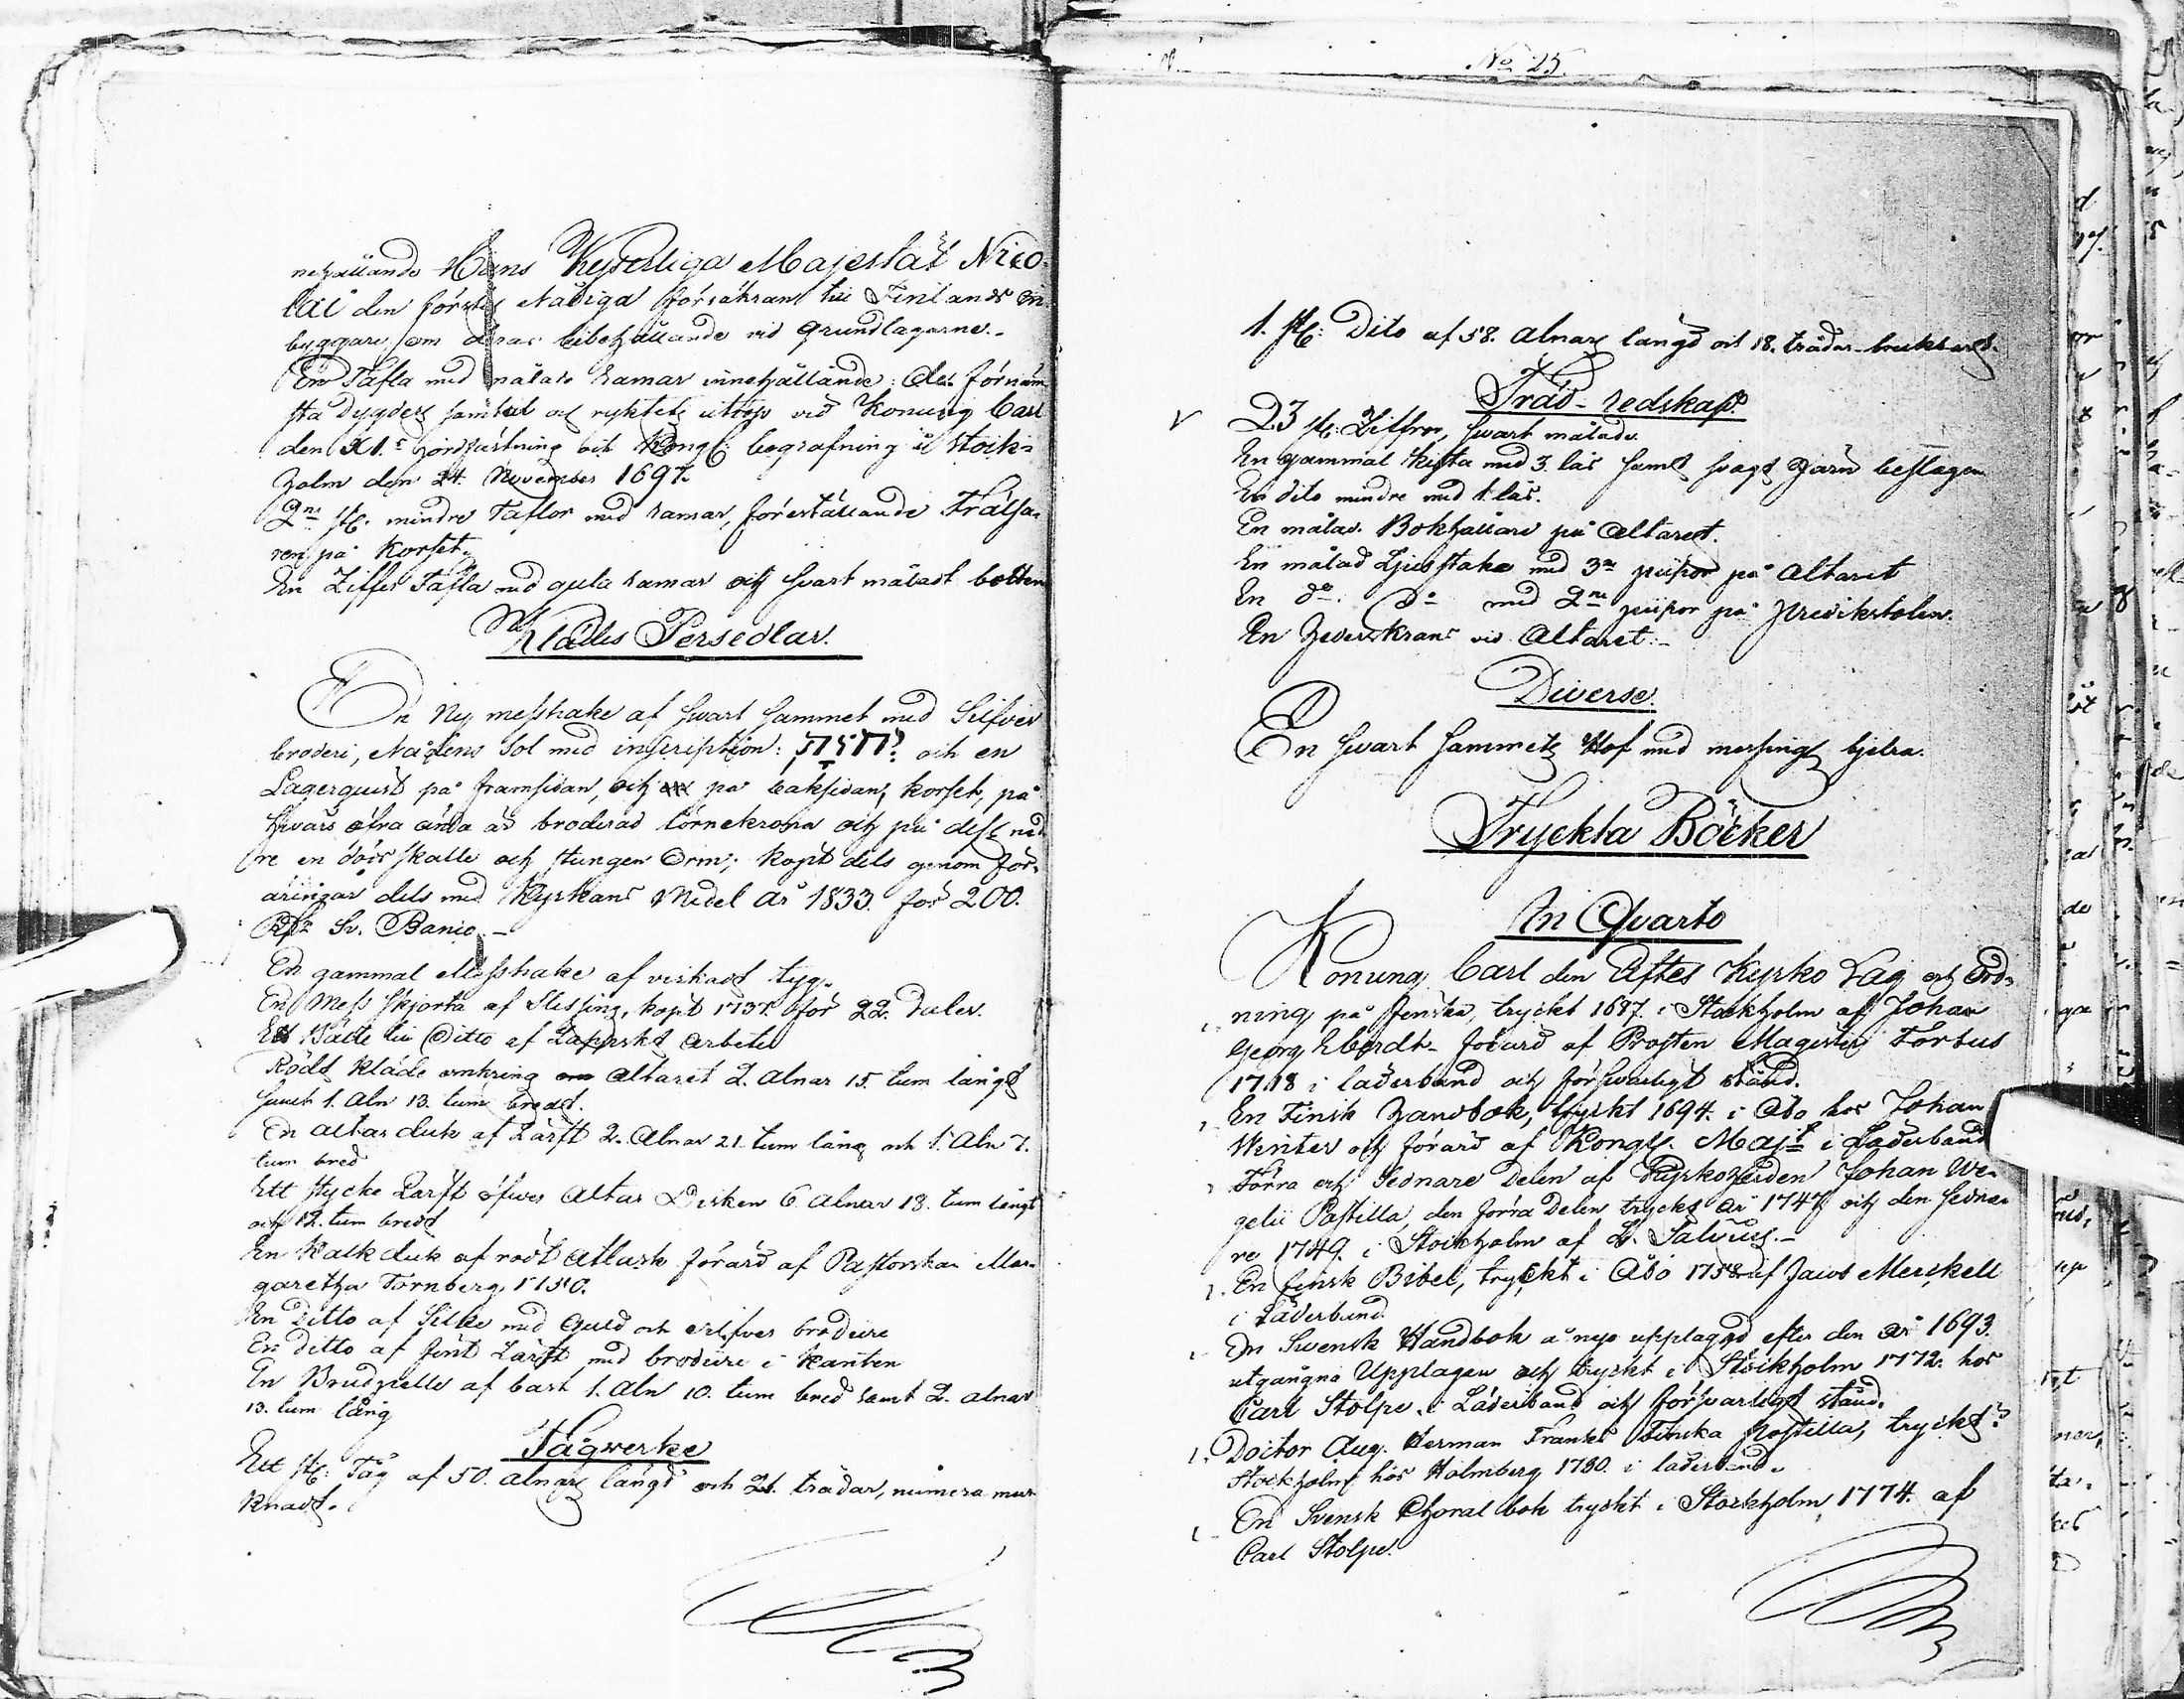 nehållande Hans Keyserliga Majestät Nico-
lai den förstes Nådiga försäkran till Finlands in-
byggare om deras bibehållande vid grundlagarne.-
En Tafla med målade ramar innehållande: de förnäm-
sta Dygders samtal och ryktets utrop vid Konung Carl
den XI.s jordfästning och Kongl: begrafning i Stock-
holm den 24. November 1697.
2ne st: mindre Taflor med ramar, föreställande Frälsa-
ren på Korset.
En Ziffer Tafla med gula ramar och svart målad botten
Klädes Persedlar.
En Ny messhake af svart sammet med Silfver
broderi, Nådens Sol med inscription: יהוה och en
Lagerquist på framsidan, och på baksidan, korset, på
hvars öfra ända är broderad törnekrona och på dess ned-
re en döds skalle och stungen Orm; köpt dels genom för-
äringar dels med Kyrkans Medel år 1833. för 200.
Rdr Sv. Banco.-
En gammal Messhake af virkadt tyg.
En Mess Skjorta af Slessing, köpt 1737. för 22. Daler.
Ett Bälte till Ditto af Lappskt arbete
Rödt Kläde omkring Altaret 2. Alnar 15. tum långt
samt 1. Aln 13. tum bredt.
En altar duk af Lärft 2. Alnar 21 tum lång och 1. Aln 7.
tum bred
Ett stycke Lärft öfver Altar Disken 6. Alnar 18. tum långt
och 12. tum bredt
En Kalk duk af rödt Atlask förärd af Pastorskan Mar-
garetha Tornberg 1750.
En Ditto af Silke med Guld och silfver brodure
En ditto af fint Lärft med brodure i Kanten
En Brudpelle af bast 1. Aln 10. tum bred samt 2. alnar
13. tum lång
Tågverke
Ett st: Tåg af 50. alnars längd och 21. trådar, numera mur-
knadt.
No 25.
1. st: Dito af 58. Alnars längd och 18. trådar brukbart.
Träd-redskap.
23 st: Ziffror, svart målade.
En gammal Kista med 3. lås samt svagt Järn beslagen
En dito mindre med 1. lås.
En målad Bokhållare på Altaret.
En målad Ljusstake med 3ne pipor på Altaret
En do. do med 2ne pipor på Predikstolen.
En Hederskrans vid Altaret.-
Diverse.
En svart Sammets Hof med messings bjelra.
Tryckta Böcker
In Qvarto
Konung Carl den Elftes Kyrko Lag och Ord-
ning på svenska, tryckt 1687. i Stockholm af Johan
Georg Eberdt- förärd af Prosten Magister Forbus
1718 i läderband och försvarligt stånd.
En Finsk Handbok, tryckt 1694. i Åbo hos Johan
Winter och förärd af Kongl. Majt i Läderband
Förra och Sednare Delen af Kyrkoherden Johan We-
gelii Postilla, den förra Delen tryckt år 1747 och den sedna-
re 1749. i Stockholm af L. Salvius.-
En finsk Bibel, tryckt i Åbo 1758 af Jacob Merckell
i Läderband.
En Swensk Handbok å nyo upplagd efter den år 1693.
utgångna Upplagan och tryckt i Stockholm 1772. hos
Carl Stolpe. i Läderband och försvarligt stånd.
Doctor Aug. Herman Frankes Finska Postilla, tryckt i
Stockholm hos Holmberg 1780. i läderband.
En Svensk Choral bok tryckt i Stockholm 1774. af
Carl Stolpe.